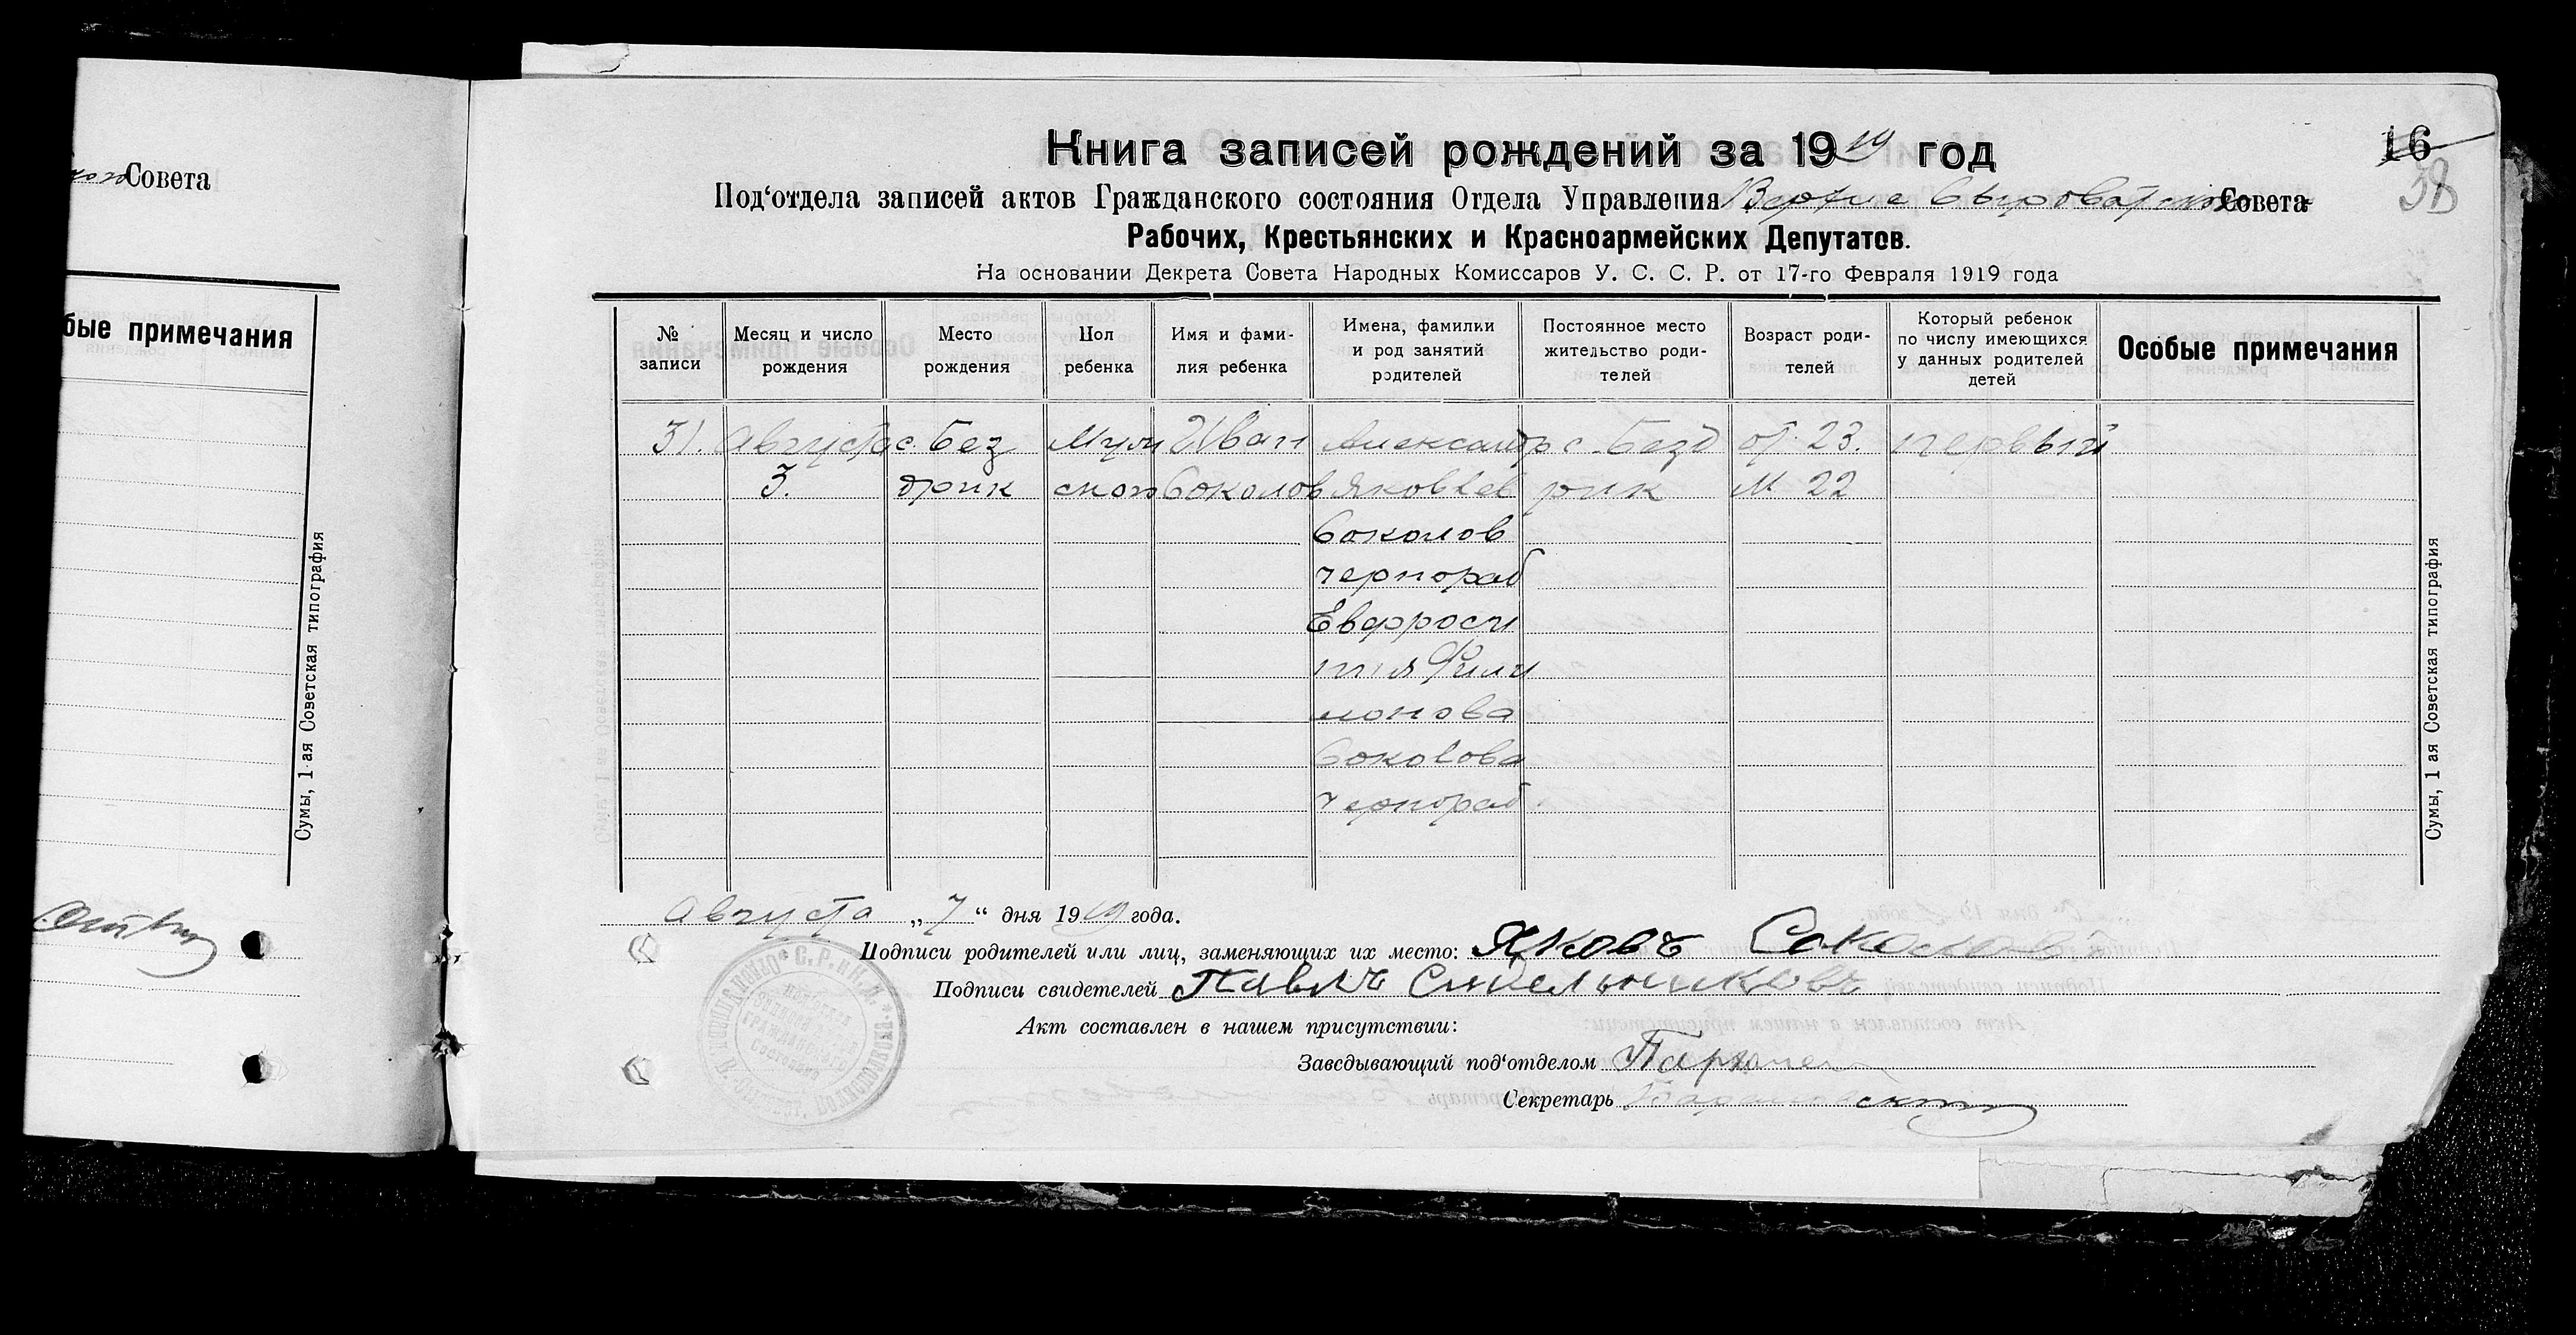 Совета
бые примечания
Сумы, 1-ая Советская типография
Книга записей рождений за 1919 год
16
38
Под‘отдела записей актов Гражданского состояния Отдела Управления Верхне Сыроватского Совета
Рабочих, Крестьянских и Красноармейских Депутатов.
На основании Декрета Совета Народных Комиссаров У. С. С. Р. от 17-го Февраля 1919 года
№ записи
Месяц и число рождения
Место рождения
Пол ребенка
Имя и фами-лия ребенка
Имена, фамилии и род занятий родителей
Постоянное место жительство роди-телей
Возраст роди-телей
Который ребенок по числу имеющихся у данных родителей детей
Особые примечания
31. Августа с. Без Муж Иван Александр с. Безд от. 23. первый
3. дрик ского Соколов Яковлев рик М 22
Соколов
чернораб
Евфроси
ния Фили
монова
Соколова
чернораб.
Сумы, 1 ая Советская типография
Августа „7“ дня 1919 года.
Подписи родителей или лиц, заменяющих их место: Яковъ Соколовъ
Подписи свидетелей Павлъ
Акт составлен в нашем присутствии:
Заведывающий под‘отделом
Секретарь